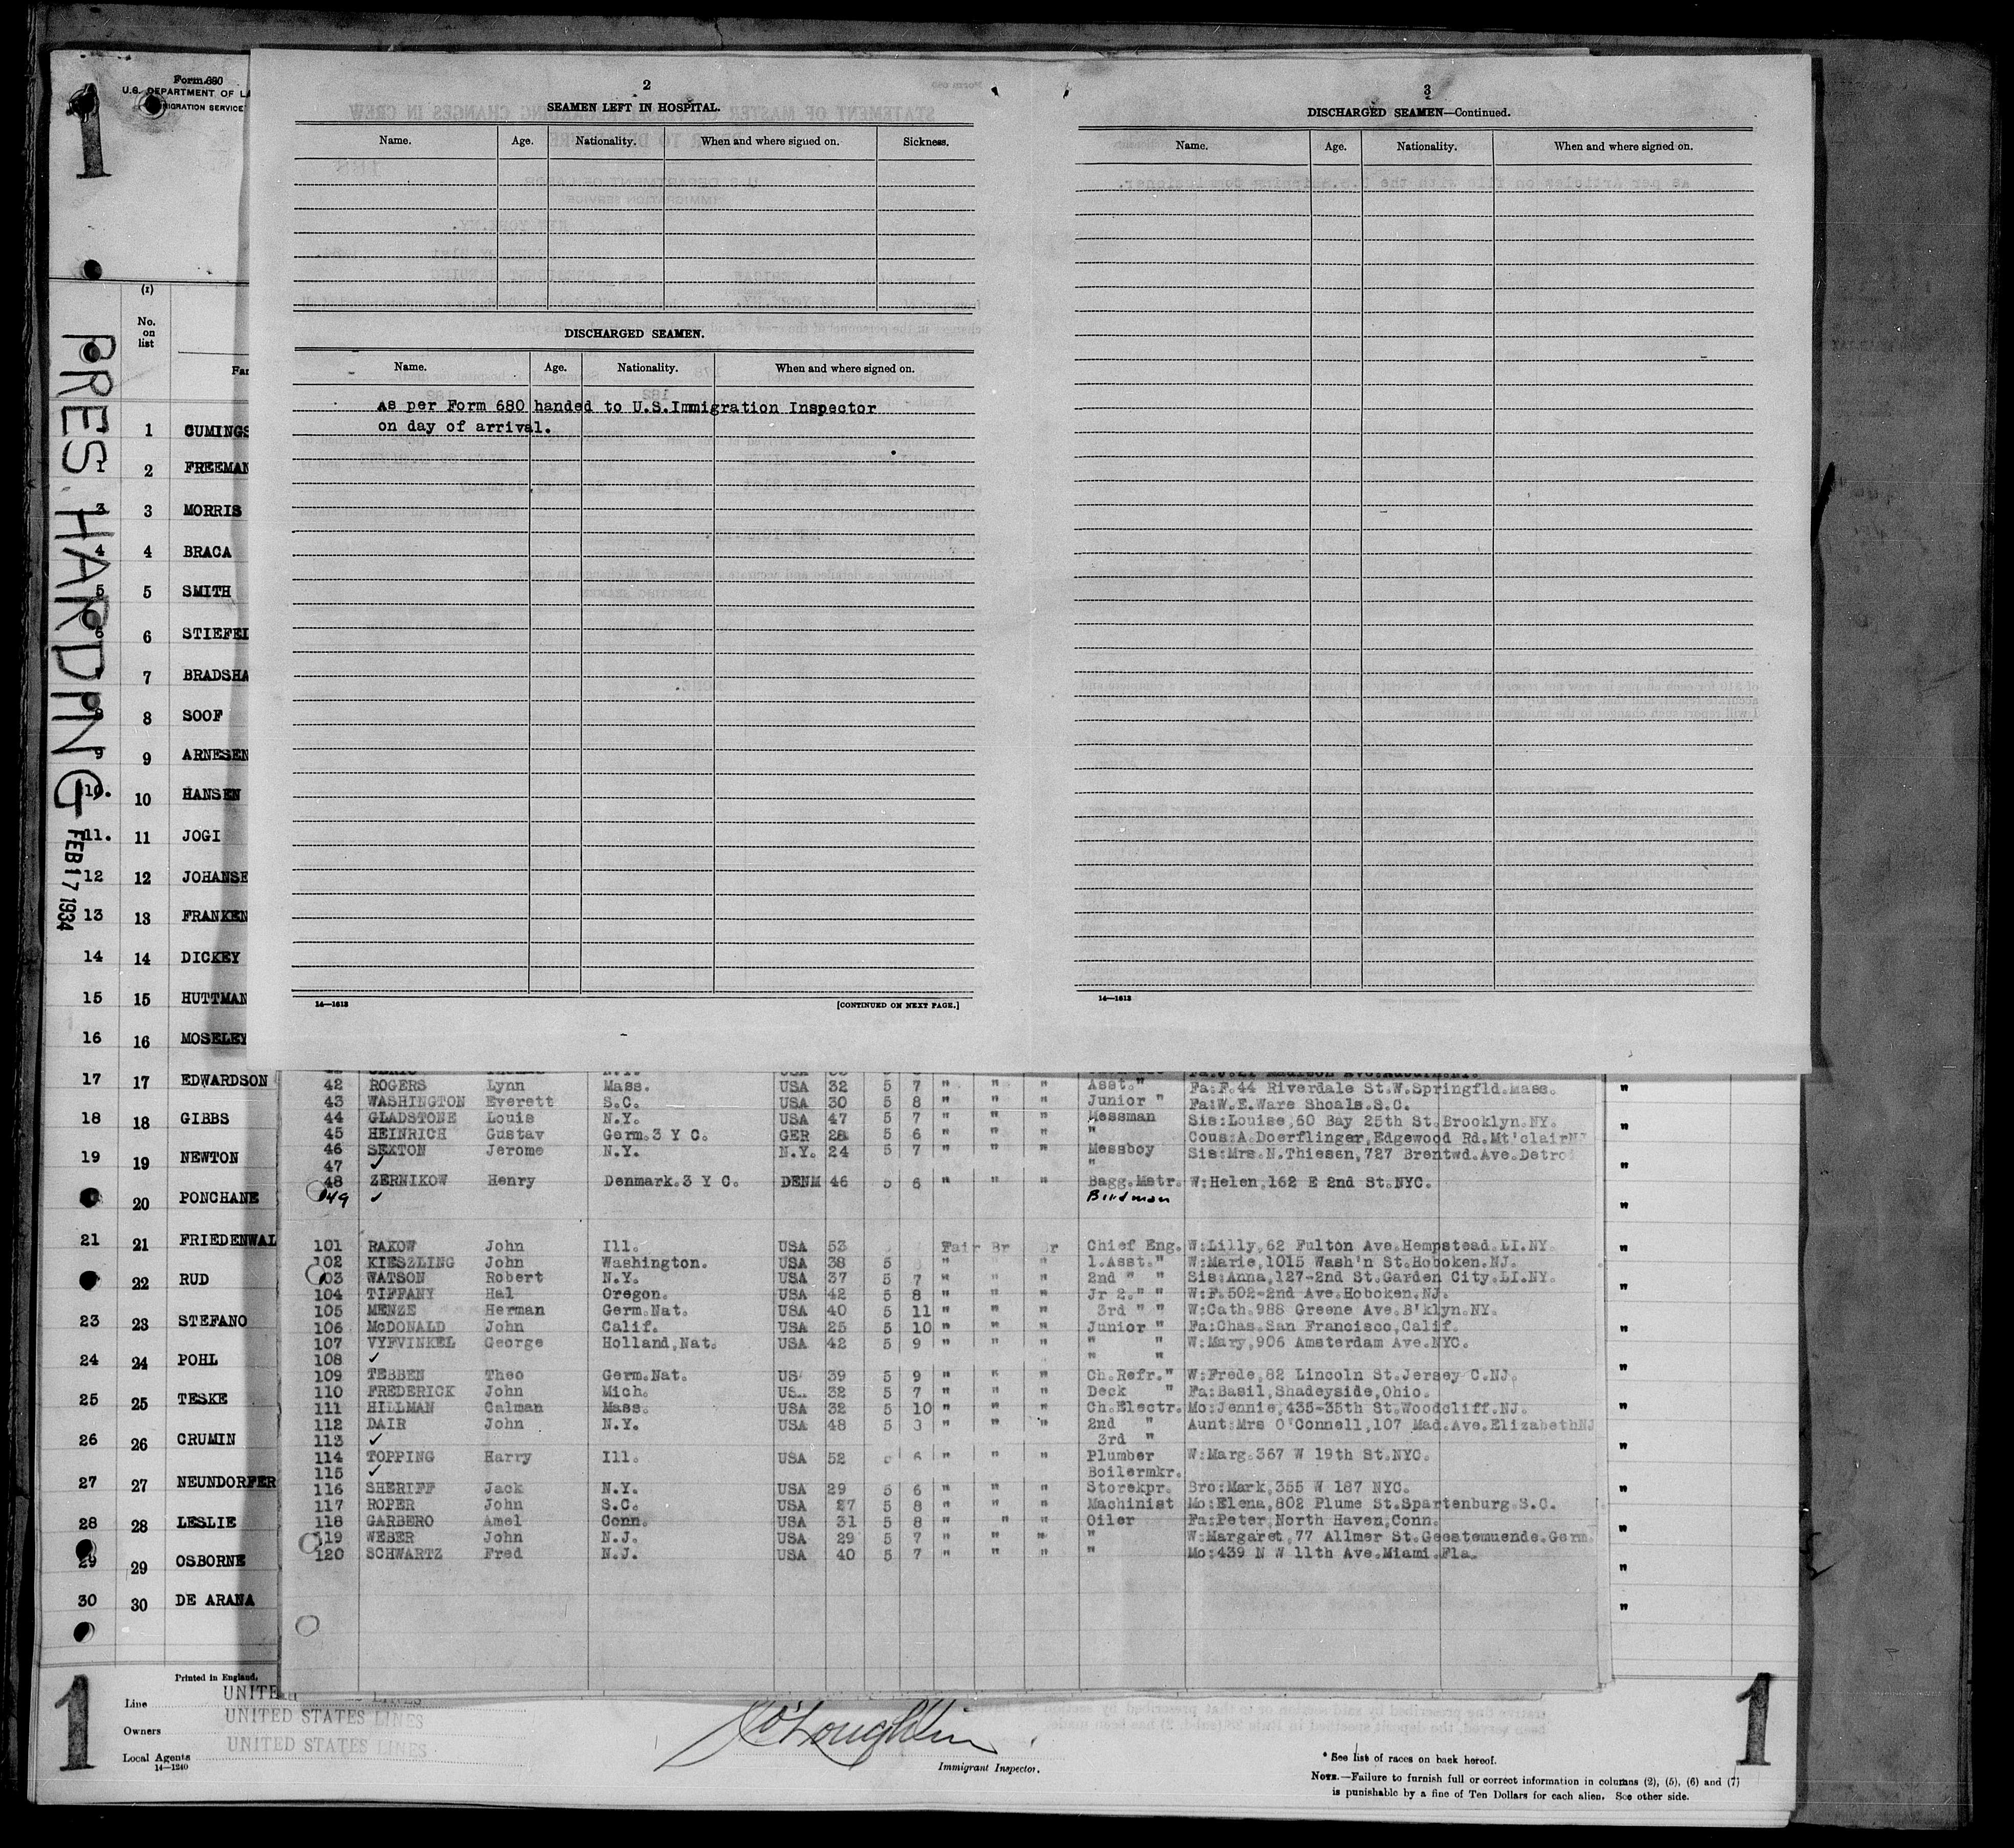 1
Form 680
U.S. DEPARTMENT OF
IMMIGRATION SERVICE
PRES. HARDING
FEB 17 1934
(1)
No.
on
list
1 CUMINGS
1 2 FREEMAN
3 3 MORRIS
4 4 BRACA
5 5 SMITH
6 6 STIEFEL
7 BRADSHA
8 8 SOOF
9 9 ARNESEN
10. 10 HANSEN
11. 11 JOGI
12 12 JOHANSE
13 13 FRANKEN
14 14 DICKEY
15 15 HUTTMAN
16 16 MOSELEY
17 17 EDWARDSON
18 18 GIBBS
19 19 NEWTON
20 PONCHANE
21 21 FRIEDENWAL
22 RUD
23 23 STEFANO
24 24 POHL
25 25 TESKE
26 26 CRUMIN
27 27 NEUNDORFER
28 28 LESLIE
29 29 OSBORNE
30 30 DE ARANA
2
SEAMEN LEFT IN HOSPITAL.
Name. Age. Nationality. When and where signed on. Sickness.
DISCHARGED SEAMEN.
Name. Age. Nationality. When and where signed on.
As per Form 680 handed to U.S.Immigration Inspector
on day of arrival.
14—1613 [CONTINUED ON NEXT PAGE.]
3
DISCHARGED SEAMEN—Continued.
Name. Age. Nationality. When and where signed on.
14—1613
42 ROGERS Lynn Mass. USA 32 5 7 " " " Asst." Fa:F.44 Riverdale St.W.Springfld.Mass.
43 WASHINGTON Everett S.C. USA 30 5 8 " " " Junior " Fa:W.E.Ware Shoals.S.C.
44 GLADSTONE Louis N.Y. USA 47 5 7 " " " Messman Sis:Louise,60 Bay 25th St.Brooklyn.NY.
45 HEINRICH Gustav Germ.3 Y C. GER 28 5 6 " " " " Cous:A.Doerflinger,Edgewood Rd.Mt'clair
46 SEXTON Jerome N.Y. N.Y. 24 5 7 " " " Messboy Sis:Mrs.N.Thiesen,727 Brentwd.Ave.Detro
47 ✓ "
48 ZERNIKOW Henry Denmark.3 Y C. DENM 46 5 6 " " " Bagg.Mstr. W:Helen,162 E 2nd St.NYC.
49 ✓
101 RAKOW John Ill. USA 53 Fair Br Br Chief Eng. W:Lilly,62 Fulton Ave.Hempstead.LI.NY.
102 KIESZLING John Washington. USA 38 5 " " " 1.Asst." W:Marie,1015 Wash'n St.Hoboken.NJ.
103 WATSON Robert N.Y. USA 37 5 7 " " " 2nd " " Sis:Anna,127-2nd St.Garden City.LI.NY.
104 TIFFANY Hal Oregon. USA 42 5 8 " " " Jr 2." " W:F.502-2nd Ave.Hoboken.NJ.
105 MENZE Herman Germ.Nat. USA 40 5 11 " " " 3rd " " W:Cath.988 Greene Ave.B'klyn.NY.
106 McDONALD John Calif. USA 25 5 10 " " " Junior " Fa:Chas.San Francisco,Calif.
107 VYFVINKEL George Holland,Nat. USA 42 5 9 " " " " " W:Mary,906 Amsterdam Ave.NYC.
108 ✓ " "
109 TEBBEN Theo Germ.Nat. US 39 5 9 " " " Ch.Refr." W:Frede,82 Lincoln St.Jersey C.NJ.
110 FREDERICK John Mich. US 32 5 7 " " " Deck " Fa:Basil,Shadeyside,Ohio.
111 HILLMAN Calman Mass. USA 32 5 10 " " " Ch.Electr. Mo:Jennie,435-35th St.Woodcliff.NJ.
112 DAIR John N.Y. USA 48 5 3 " " " 2nd " Aunt:Mrs O'Connell,107 Mad.Ave.ElizabethNJ
113 ✓ 3rd "
114 TOPPING Harry Ill. USA 52 6 " " " Plumber W:Marg.367 W 19th St.NYC.
115 ✓ Boilermkr.
116 SHERIFF Jack N.Y. USA 29 5 6 " " " Storekpr. Bro:Mark,355 W 187 NYC.
117 ROPER John S.C. USA 27 5 8 " " " Machinist Mo:Elena,802 Plume St.Spartenburg.S.C.
118 GARBERO Amel Conn. USA 31 5 8 " " " Oiler Fa:Peter,North Haven,Conn.
119 WEBER John N.J. USA 29 5 7 " " " " W:Margaret,77 Allmer St.Geestemuende.Germ.
120 SCHWARTZ Fred N.J. USA 40 5 7 " " " " Mo:439 N W 11th Ave.Miami.Fla.
Printed in England.
1
Line UNITED STATES LINES
Owners UNITED STATES LINES
Local Agents UNITED STATES LINES
14—1240
O'Loughlin
Immigrant Inspector.
* See list of races on back hereof.
NOTE.—Failure to furnish full or correct information in columns (2), (5), (6) and (7)
is punishable by a fine of Ten Dollars for each alien. See other side.
1